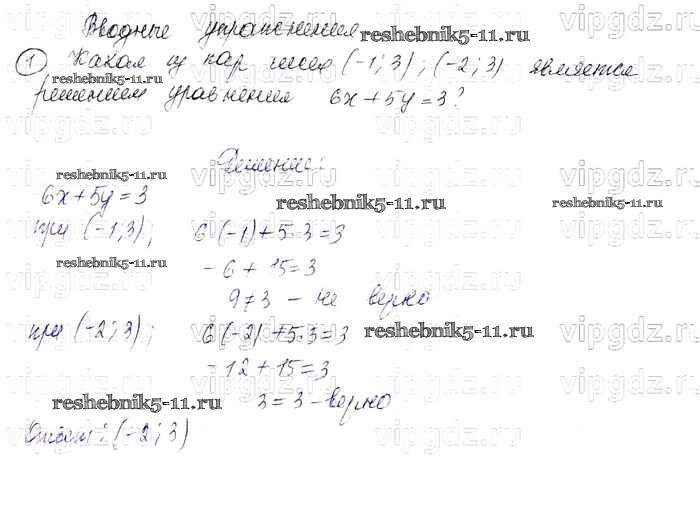 Вводные упражнения
reshebnik5-11.ru
① Какая из пар чисел (-1; 3); (-2; 3) является
reshebnik5-11.ru
решением уравнения 6x + 5y = 3?
Решение:
reshebnik5-11.ru
6x + 5y = 3
reshebnik5-11.ru
reshebnik5-11.ru
при (-1; 3); 6(-1) + 5·3 = 3
reshebnik5-11.ru
- 6 + 15 = 3
9 ≠ 3 - не верно
при (-2; 3); 6(-2) + 5·3 = 3
reshebnik5-11.ru
- 12 + 15 = 3
reshebnik5-11.ru
3 = 3 - верно
Ответ: (-2; 3)
vipgdz.ru